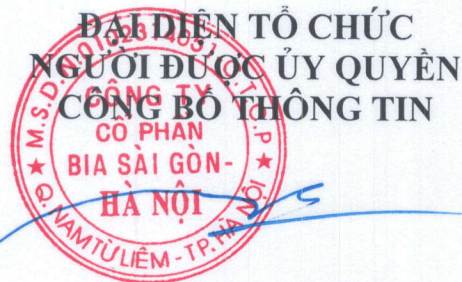 ĐẠI DIỆN TỔ CHỨC
NGƯỜI ĐƯỢC ỦY QUYỀN
CÔNG BỐ THÔNG TIN
CÔNG TY
CỔ PHẦN
BIA SÀI GÒN-
HÀ NỘI
★ Q. NAM TỪ LIÊM - TP. HÀ NỘI ★